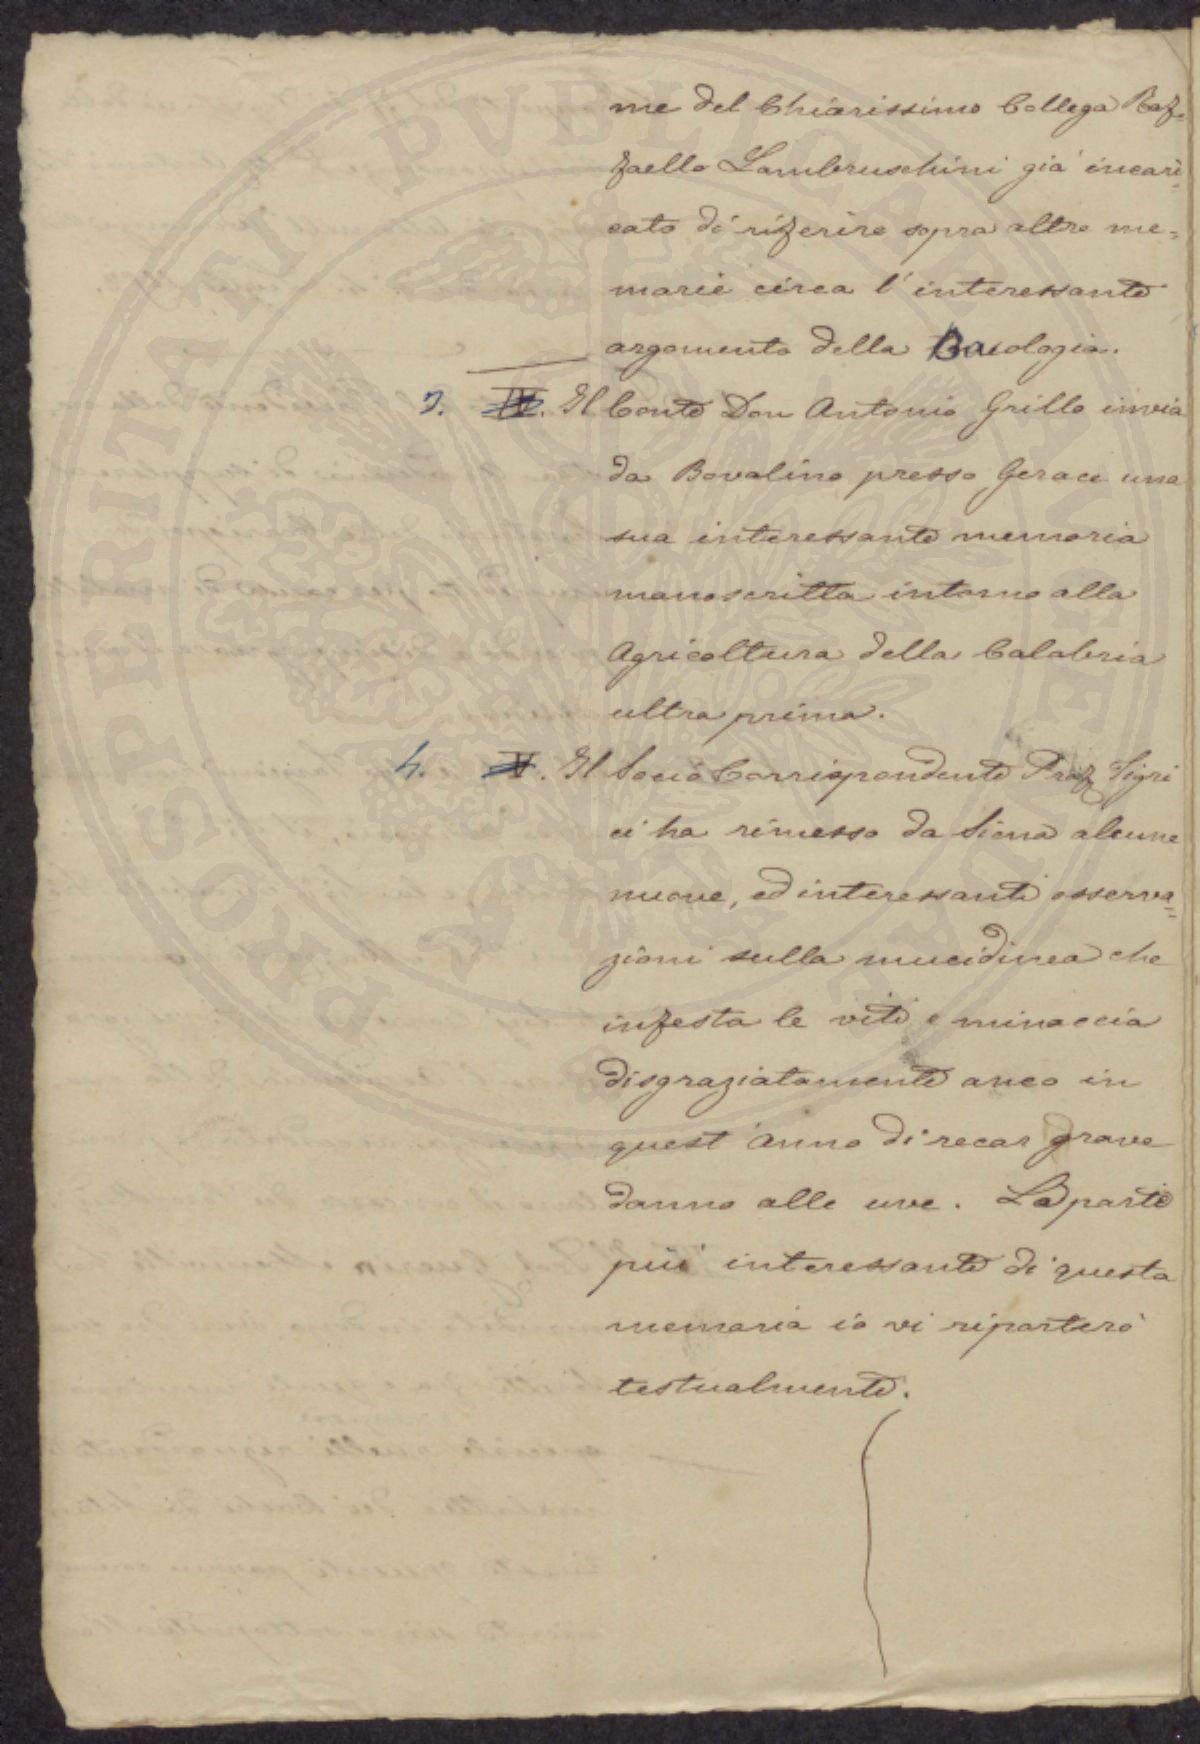 me del Chiarissimo Collega Raf=
faello Lambruschini già incari=
cato di riferire sopra altre me=
morie circa l'interessante
argomento della Bacologia.
3. IV. Il Conte Don Antonio Grillo invia
da Bovalino presso Gerace una
sua interessante memoria
manoscritta intorno alla
Agricoltura della Calabria
ultra prima.
4. V. Il Socio Corrispondente Prof Tigri
ci ha rimesso da Siena alcune
nuove, ed interessanti osserva=
zioni sulla mucidinea che
infesta le viti e minaccia
disgraziatamente anco in
quest'anno di recar grave
danno alle uve. La parte
più interessante di questa
memoria io vi riporterò
testualmente.
PROSPERITATI PVBLICAE AVGENDAE